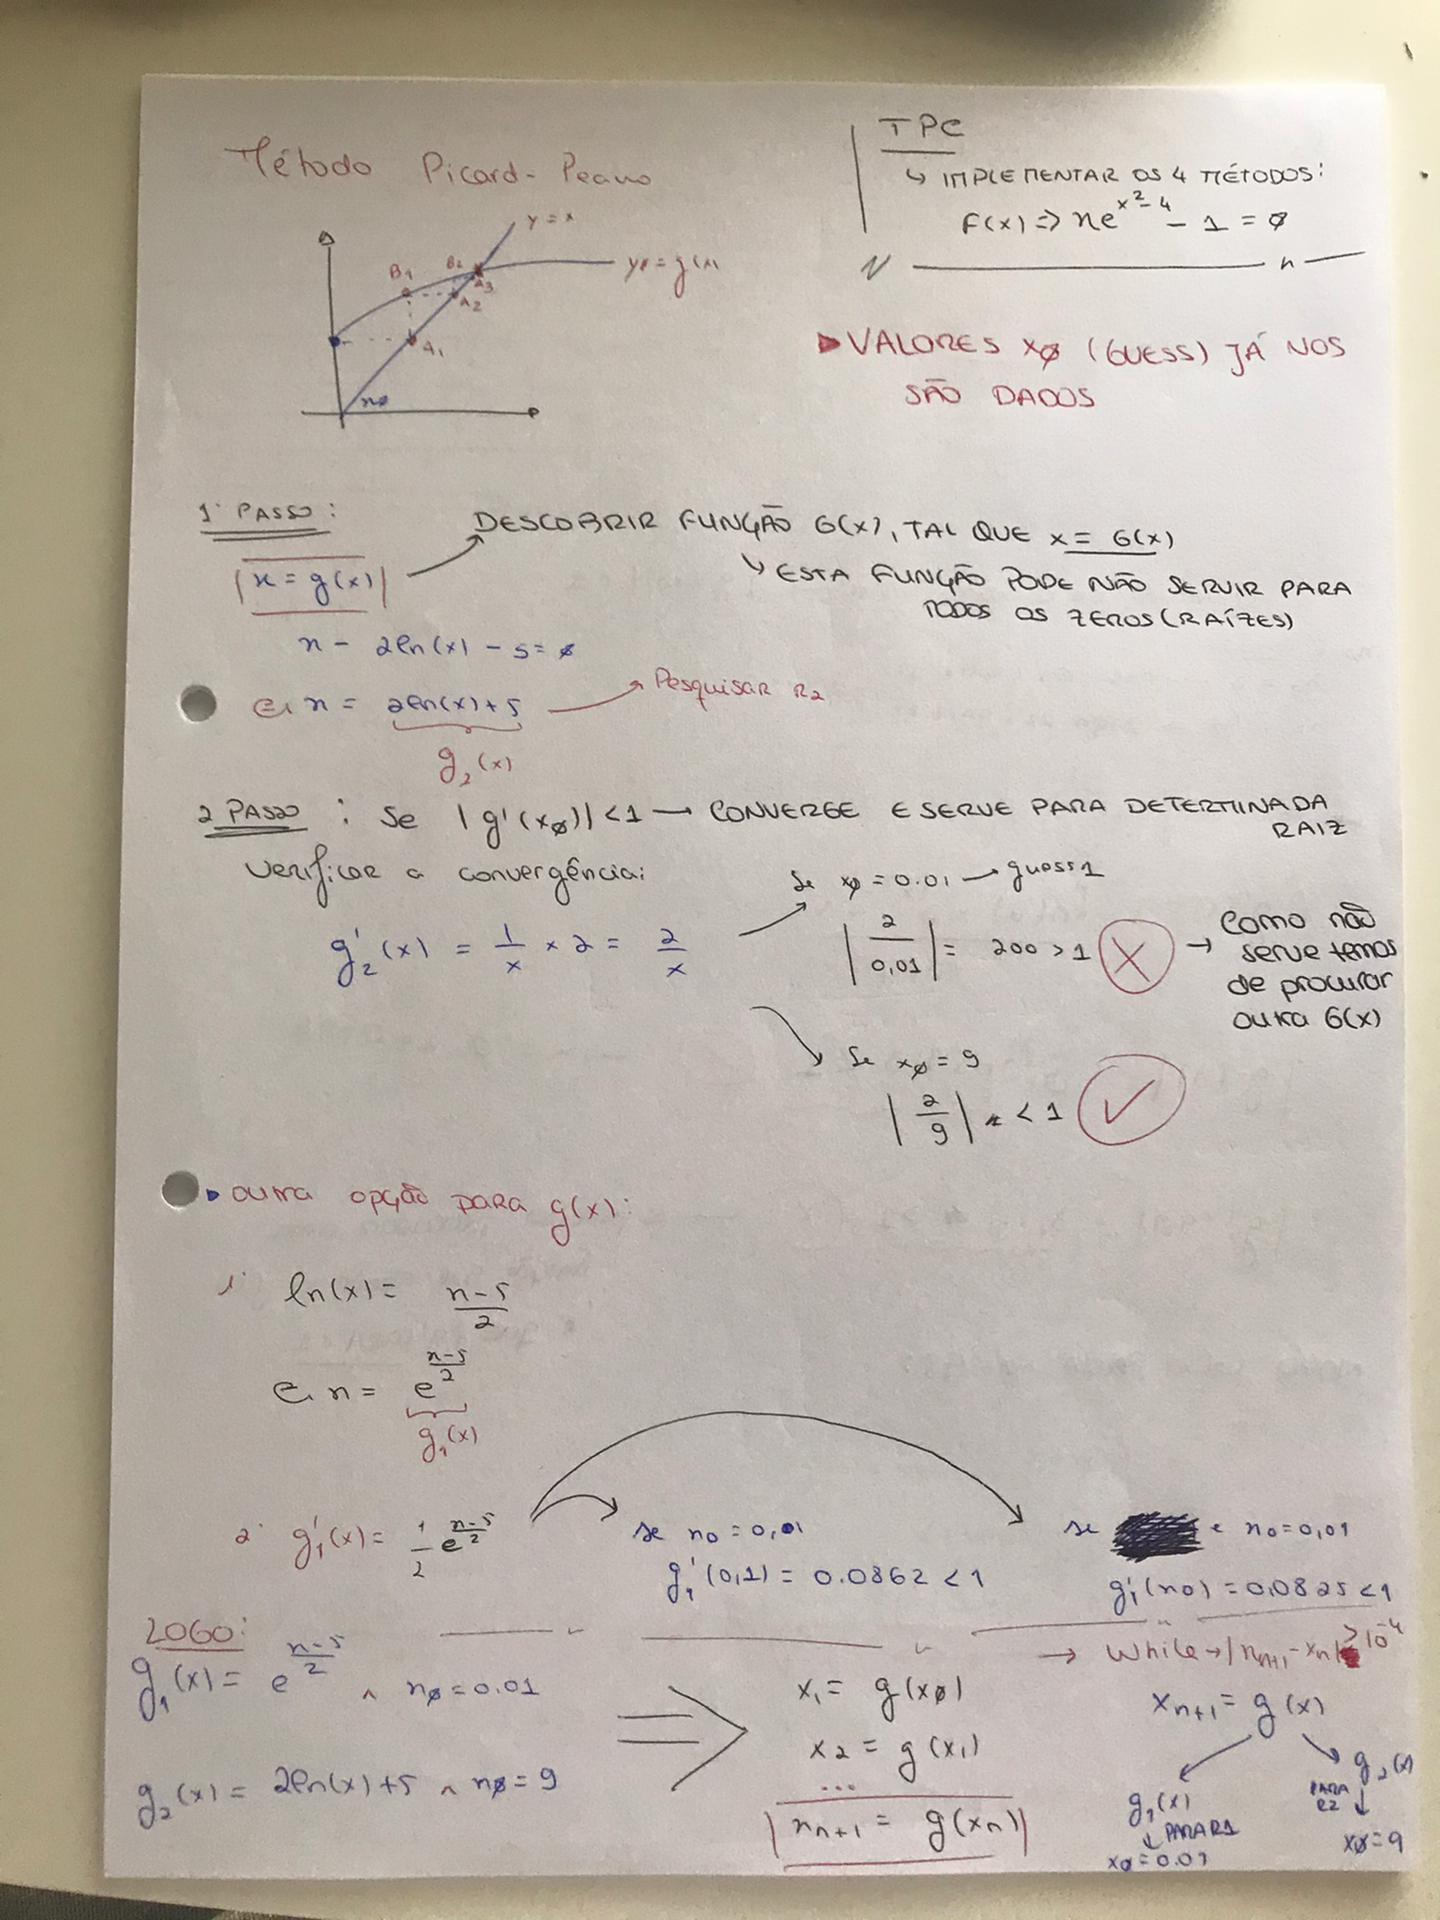 Método Picard-Peano
TPC
↳ IMPLEMENTAR OS 4 MÉTODOS:
F(x) => xe^(x²-4) - 1 = 0
y = x
y = g(x)
B1
B2
A3
A2
A1
x0
► VALORES x0 (GUESS) JÁ NOS
SÃO DADOS
1º PASSO:
DESCOBRIR FUNÇÃO G(x), TAL QUE x = G(x)
x = g(x)
↳ ESTA FUNÇÃO PODE NÃO SERVIR PARA
TODOS OS ZEROS (RAÍZES)
x - 2ln(x) - 5 = 0
x = 2ln(x)+5 → Pesquisar R2
g2(x)
2 PASSO : Se |g'(x0)| < 1 → CONVERGE E SERVE PARA DETERMINADA
RAIZ
Verificar a convergência:
Se x0 = 0.01 → guess 1
g2'(x) = 1/x × 2 = 2/x
|2/0,01| = 200 > 1 X → Como não
serve temos
de procurar
outra G(x)
Se x0 = 9
|2/9| < 1 ✓
► outra opção para g(x):
1º ln(x) = (x-5)/2
x = e^((x-5)/2)
g1(x)
2º g1'(x) = 1/2 e^((x-5)/2)
se x0 = 0,01
g1'(0,1) = 0.0862 < 1
se x0 = 0,01
g1'(x0) = 0,0825 < 1
LOGO:
g1(x) = e^((x-5)/2) ∧ x0 = 0.01
g2(x) = 2ln(x)+5 ∧ x0 = 9
x1 = g(x0)
x2 = g(x1)
...
xn+1 = g(xn)
→ While → |xn+1 - xn| > 10^-4
xn+1 = g(x)
g1(x)
↓ PARA R1
x0 = 0.01
g2(x)
PARA
R2 ↓
x0 = 9